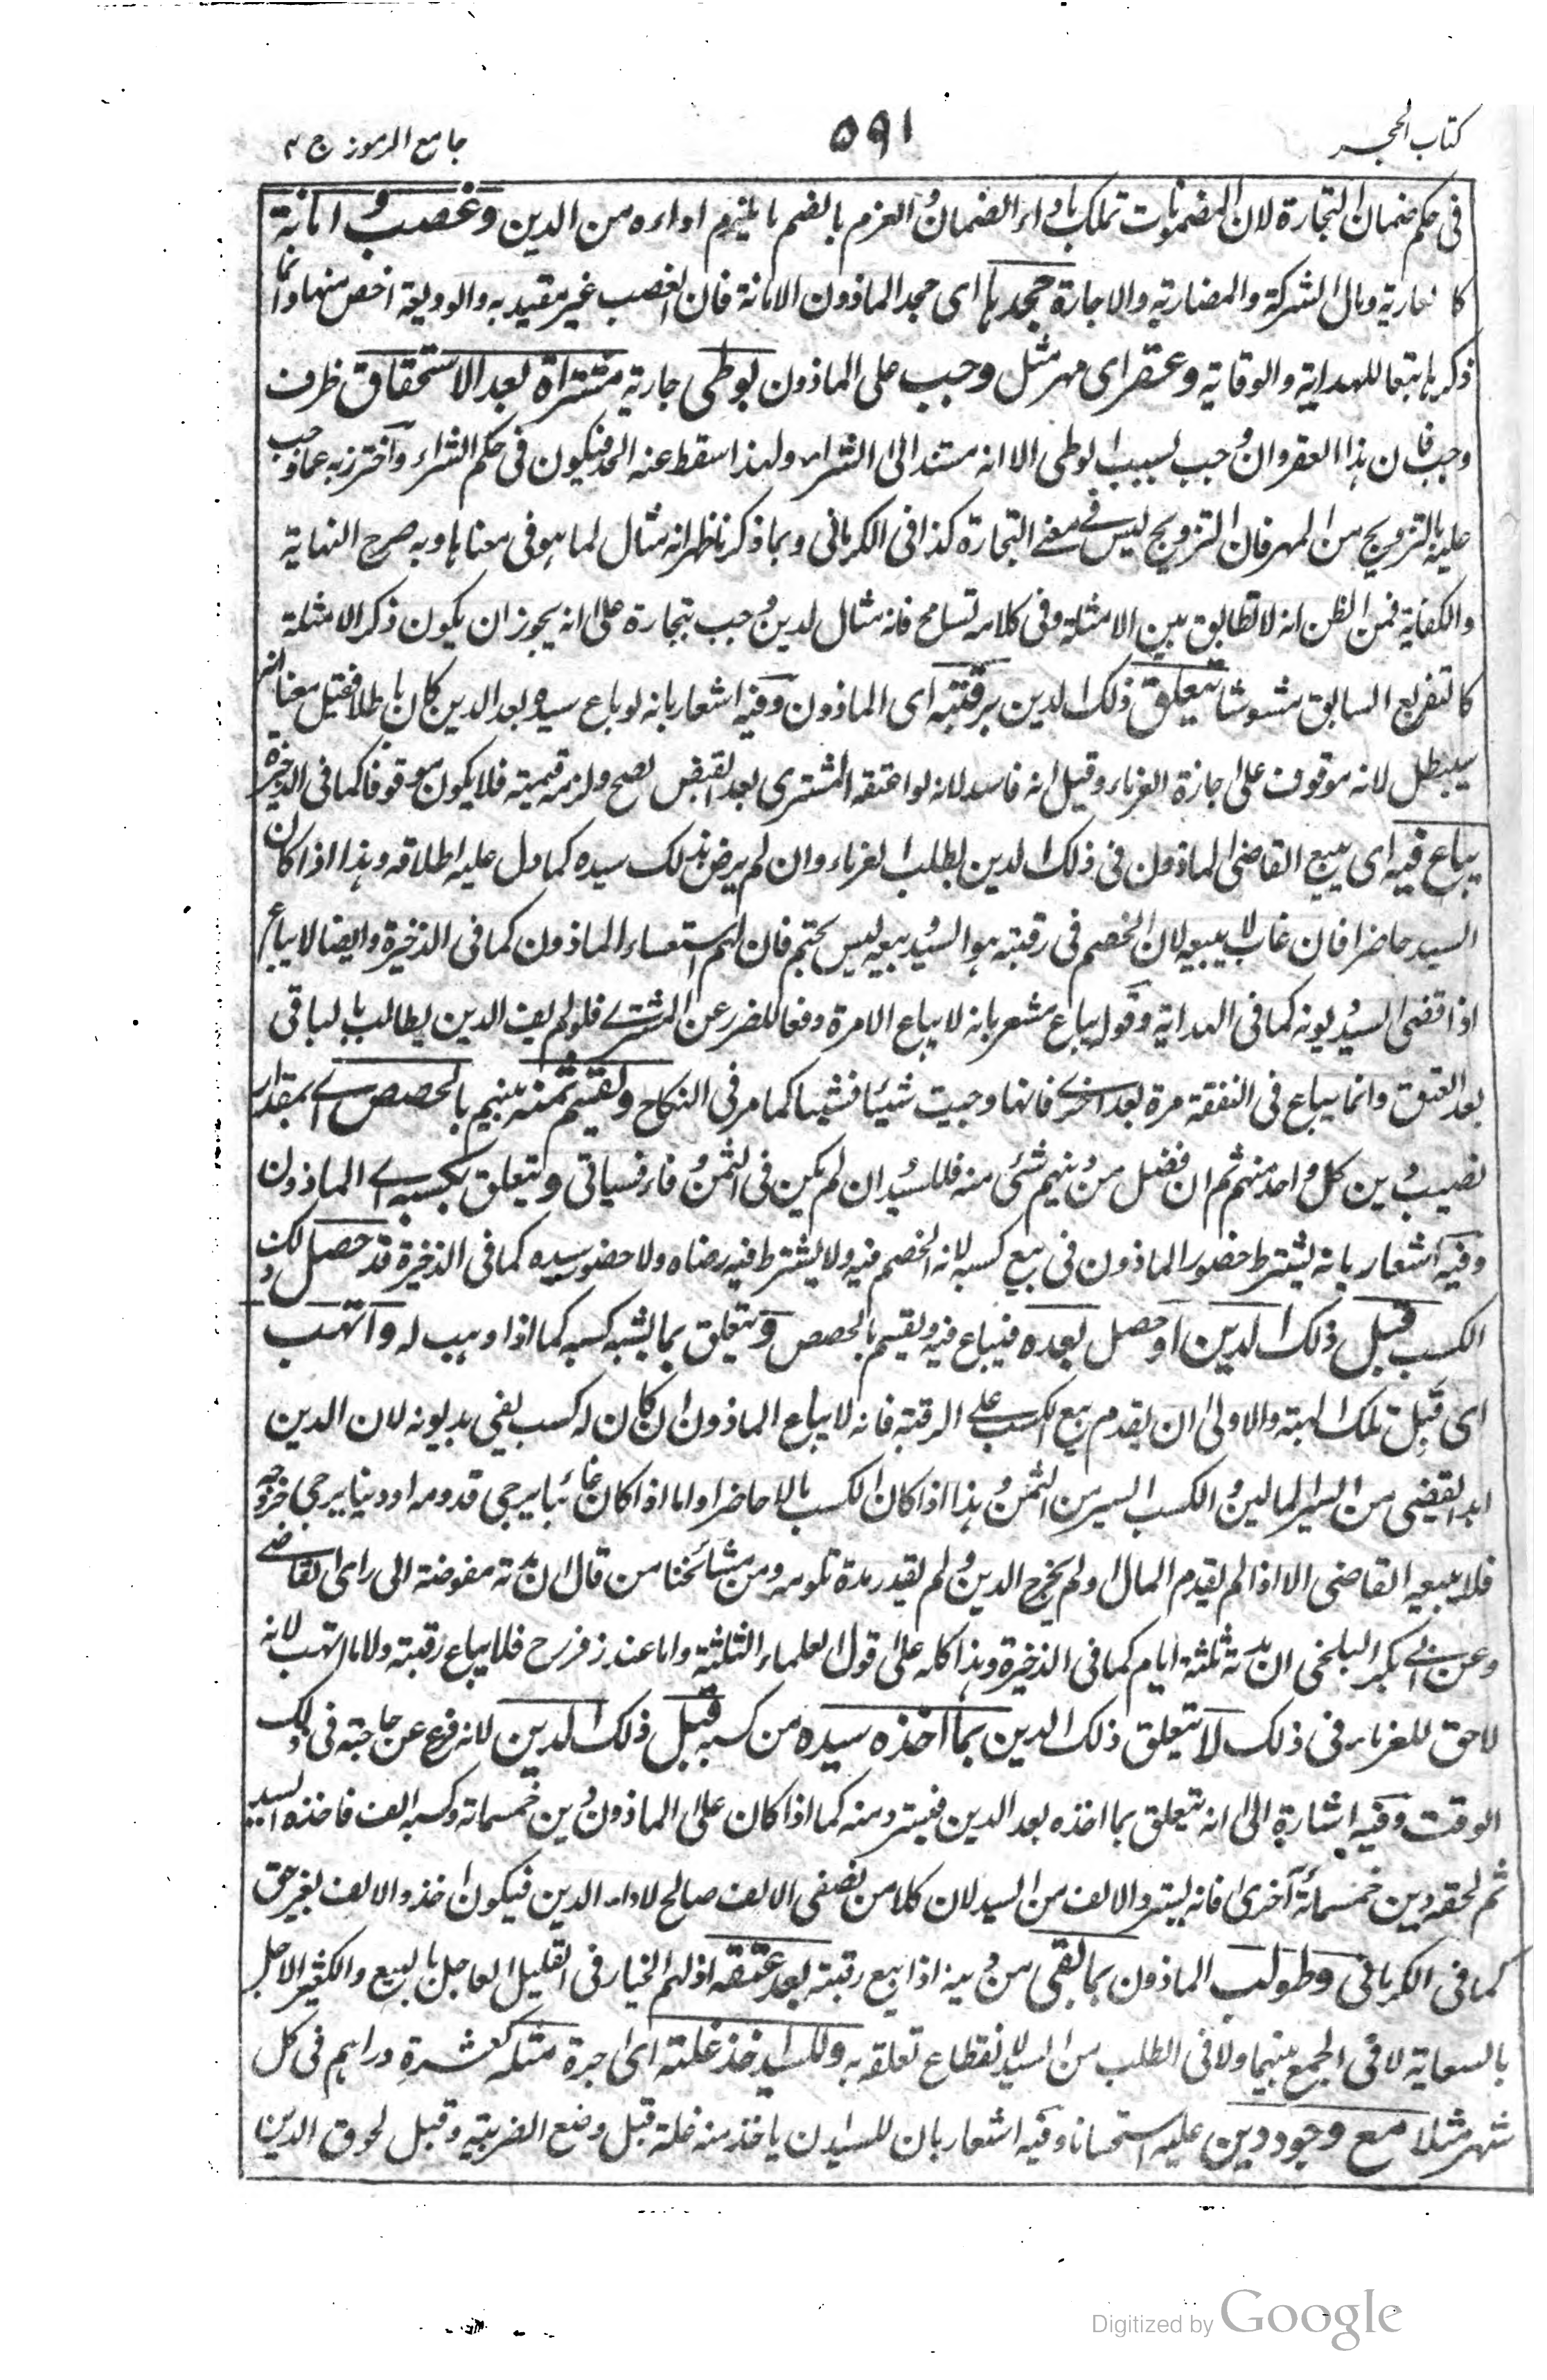 كتاب الحجر
٥٩١
جامع الرموز ج ٣
فى حكم ضمان التجارة لان المضمونات تملك باداء الضمان والغرم بالضم ما يلزم اداءه من الدين وغصب وامانة
كالعارية ومال الشركة والمضاربة والاجارة جحدها اى جحد الماذون الامانة فان الغصب غير مقيد به والوديعة اخص منها وانما
ذكرها تبعا للهداية والوقاية وعقر اى مهر مثل وجب على الماذون بوطى جارية مشتراة بعد الاستحقاق ظرف
وجب فان هذا العقر وان وجب بسبب الوطى الا انه مستند الى الشراء ولهذا سقط عنه الحد فيكون فى حكم الشراء واحترز به عما وجب
عليه بالتزويج من المهر فان التزويج ليس فى معنى التجارة كذا فى الكرمانى وبما ذكرنا ظهر انه مثال لما هو فى معناها وبه صرح النهاية
والكفاية فمن الظن انه لا تطابق بين الامثلة وفى كلامه تسامح فانه مثال لدين وجب بتجارة على انه يجوز ان يكون ذكر الامثلة
كالتفريع السابق مشوشا يتعلق ذلك الدين برقبته اى الماذون وفيه اشعار بانه لو باع سيده بعد الدين كان باطلا فقيل معناه انه
سيبطل لانه موقوف على اجازة الغرماء وقيل انه فاسد لانه لو اعتقه المشترى بعد القبض لصح ولزمه قيمته فلا يكون موقوفا كما فى الذخيرة
يباع فيه اى يبيع القاضى الماذون فى ذلك الدين بطلب الغرماء وان لم يرض بذلك سيده كما دل عليه اطلاقه وهذا اذا كان
السيد حاضرا فان غاب لا يبيعه لان الخصم فى رقبته هو السيد وبيعه ليس بحتم فان لهم استسعاء الماذون كما فى الذخيرة وايضا لا يباع
اذا قضى السيد ديونه كما فى الهداية وقوله يباع مشعر بانه لا يباع الا مرة دفعا للضرر عن المشترى فلو لم يف الدين يطالب بالباقى
بعد العتق وانما يباع فى النفقة مرة بعد اخرى فانها وجبت شيئا فشيئا كما مر فى النكاح ويقسم ثمنه بينهم بالحصص اى بمقدار
نصيب دين كل واحد منهم ثم ان فضل من دينهم شئ منه فللسيد وان لم يكن فى الثمن وفاء فسياتى ويتعلق بكسبه اى الماذون
وفيه اشعار بانه يشترط حضور الماذون فى بيع كسبه لانه الخصم فيه ولا يشترط فيه رضاه ولا حضور سيده كما فى الذخيرة قد حصل ذلك
الكسب قبل ذلك الدين او حصل بعده فيباع فيه ويقسم بالحصص ويتعلق بما يشبه كسبه كما اذا وهب له واتهب
اى قبل تلك الهبة والاولى ان يقدم بيع الكسب على الرقبة فانه لا يباع الماذون ان كان له كسب يفى بديونه لان الدين
ابدا يقضى من ايسر المالين والكسب ايسر من الثمن وهذا اذا كان الكسب مالا حاضرا واما اذا كان غائبا يرجى قدومه او دينا يرجى خروجه
فلا يبيعه القاضى الا اذا لم يقدم المال او لم يخرج الدين ولم يقدر مدة تلومه ومن مشائخنا من قال ان مدته مفوضة الى راى القاضى
وعن ابى بكر البلخى ان مدته ثلثة ايام كما فى الذخيرة وهذا كله على قول العلماء الثلثة واما عند زفر رح فلا يباع رقبته ولا ما اتهب لانه
لا حق للغرماء فى ذلك لا يتعلق ذلك الدين بما اخذه سيده من كسبه قبل ذلك الدين لانه فرغ عن حاجته فى ذلك
الوقت وفيه اشارة الى انه يتعلق بما اخذه بعد الدين فيسترد منه كما اذا كان على الماذون دين خمسمائة وكسبه الف فاخذه السيد
ثم لحقه دين خمسمائة اخرى فانه يسترد الالف من السيد لان كلا من نصفى الالف صالح لاداء الدين فيكون اخذه الالف بغير حق
كما فى الكرمانى وطولب الماذون بما بقى من دينه اذا بيع رقبته بعد عتقه اذ لهم الخيار فى القليل العاجل بالبيع والكثير الاجل
بالسعاية لا فى الجمع بينهما ولا فى الطلب من السيد لانقطاع تعلقه به وللسيد اخذ غلته اى اجرة مثله كعشرة دراهم فى كل
شهر مثلا مع وجود دين عليه استحسانا وفيه اشعار بان للسيد ان ياخذ منه غلة قبل وضع الضريبة وقبل لحوق الدين
Digitized by Google